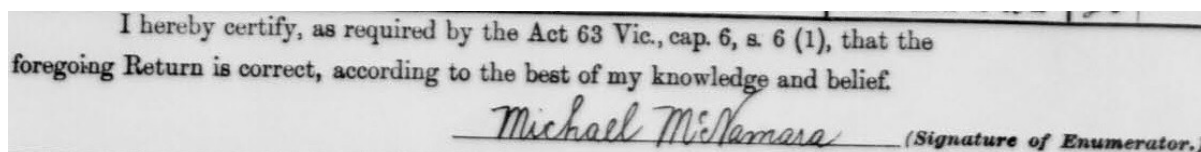 I hereby certify, as required by the Act 63 Vic., cap. 6, s. 6 (1), that the
foregoing Return is correct, according to the best of my knowledge and belief.
Michael McNamara (Signature of Enumerator.)